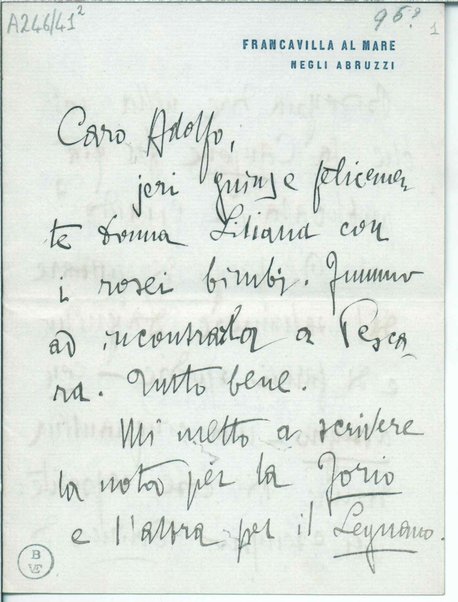 A246/41²
95?
1
FRANCAVILLA AL MARE
NEGLI ABRUZZI
Caro Adolfo,
jeri giunse felicemen
te Donna Liliana con
i rosei bimbi. Fummo
ad incontrarla a Pesca
ra. Tutto bene.
Mi metto a scrivere
la nota per la Jorio
e l'altra per il Legnano.
B
VE